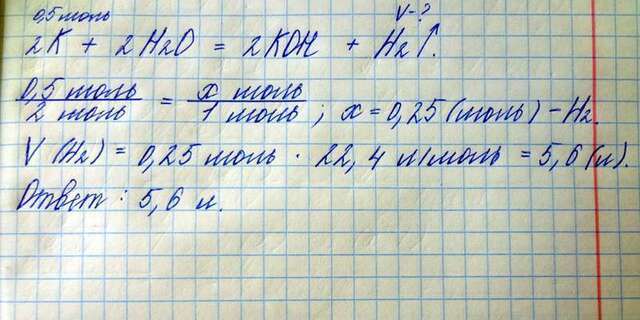 0,5 моль V-?
2K + 2H2O = 2KOH + H2↑.
0,5 моль / 2 моль = x моль / 1 моль ; x = 0,25 (моль) - H2.
V (H2) = 0,25 моль · 22,4 л/моль = 5,6 (л).
Ответ : 5,6 л.